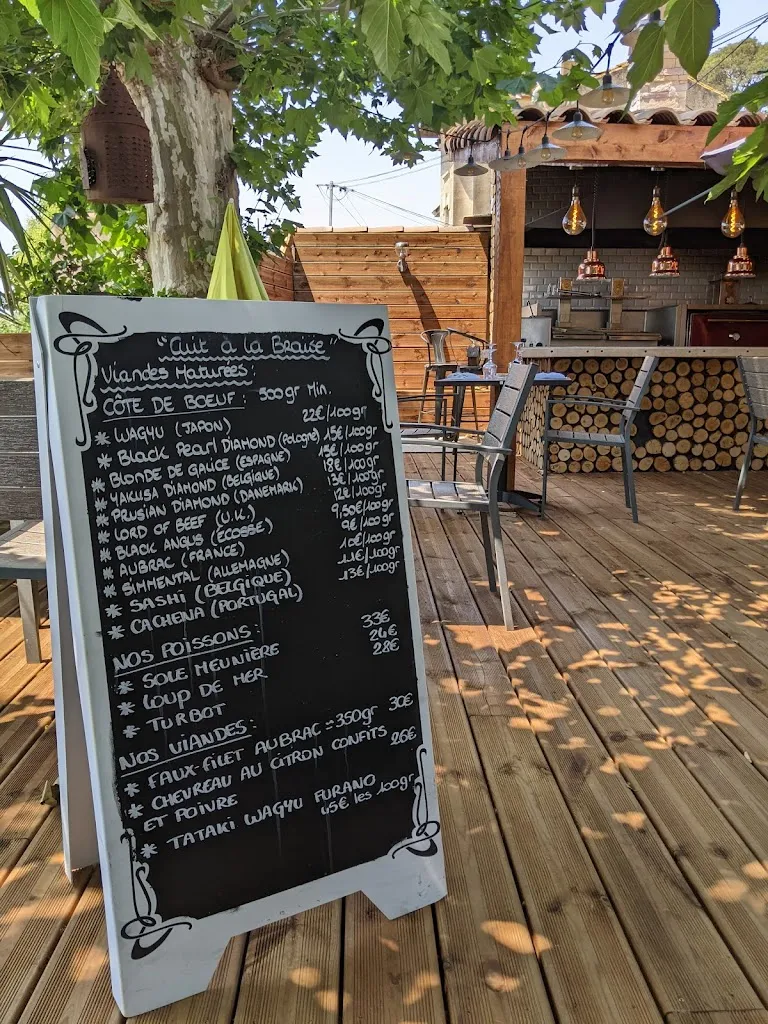 "Cuit à la Braise"
Viandes Maturées:
CÔTE DE BOEUF: 500gr Min.
* WAGYU (JAPON) 22€/100gr
* Black Pearl DIAMOND (Pologne) 15€/100gr
* BLONDE DE GALICE (ESPAGNE) 15€/100gr
* YAKUSA DIAMOND (BELGIQUE) 18€/100gr
* PRUSIAN DIAMOND (DANEMARK) 13€/100gr
* LORD OF BEEF (U.K.) 12€/100gr
* BLACK ANGUS (ECOSSE) 9,50€/100gr
* AUBRAC (FRANCE) 9€/100gr
* SIMMENTAL (ALLEMAGNE) 10€/100gr
* SASHI (BELGIQUE) 11€/100gr
* CACHENA (PORTUGAL) 13€/100gr
NOS POISSONS:
* SOLE MEUNIÈRE 33€
* LOUP DE MER 26€
* TURBOT 28€
NOS VIANDES:
* FAUX-FILET AUBRAC ≃ 350gr 30€
* CHEVREAU AU CITRON CONFITS 26€
ET POIVRE
* TATAKI WAGYU FURANO
45€ les 100gr